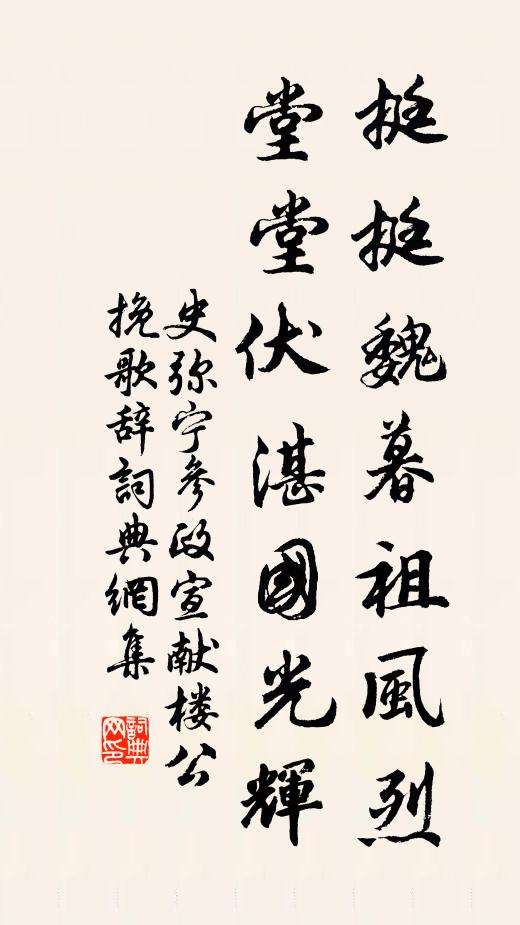 挺挺魏暮祖風烈
堂堂伏湛國光輝
史弥宁參政宣献楼公
挽歌辞詞典網集
詞典网印